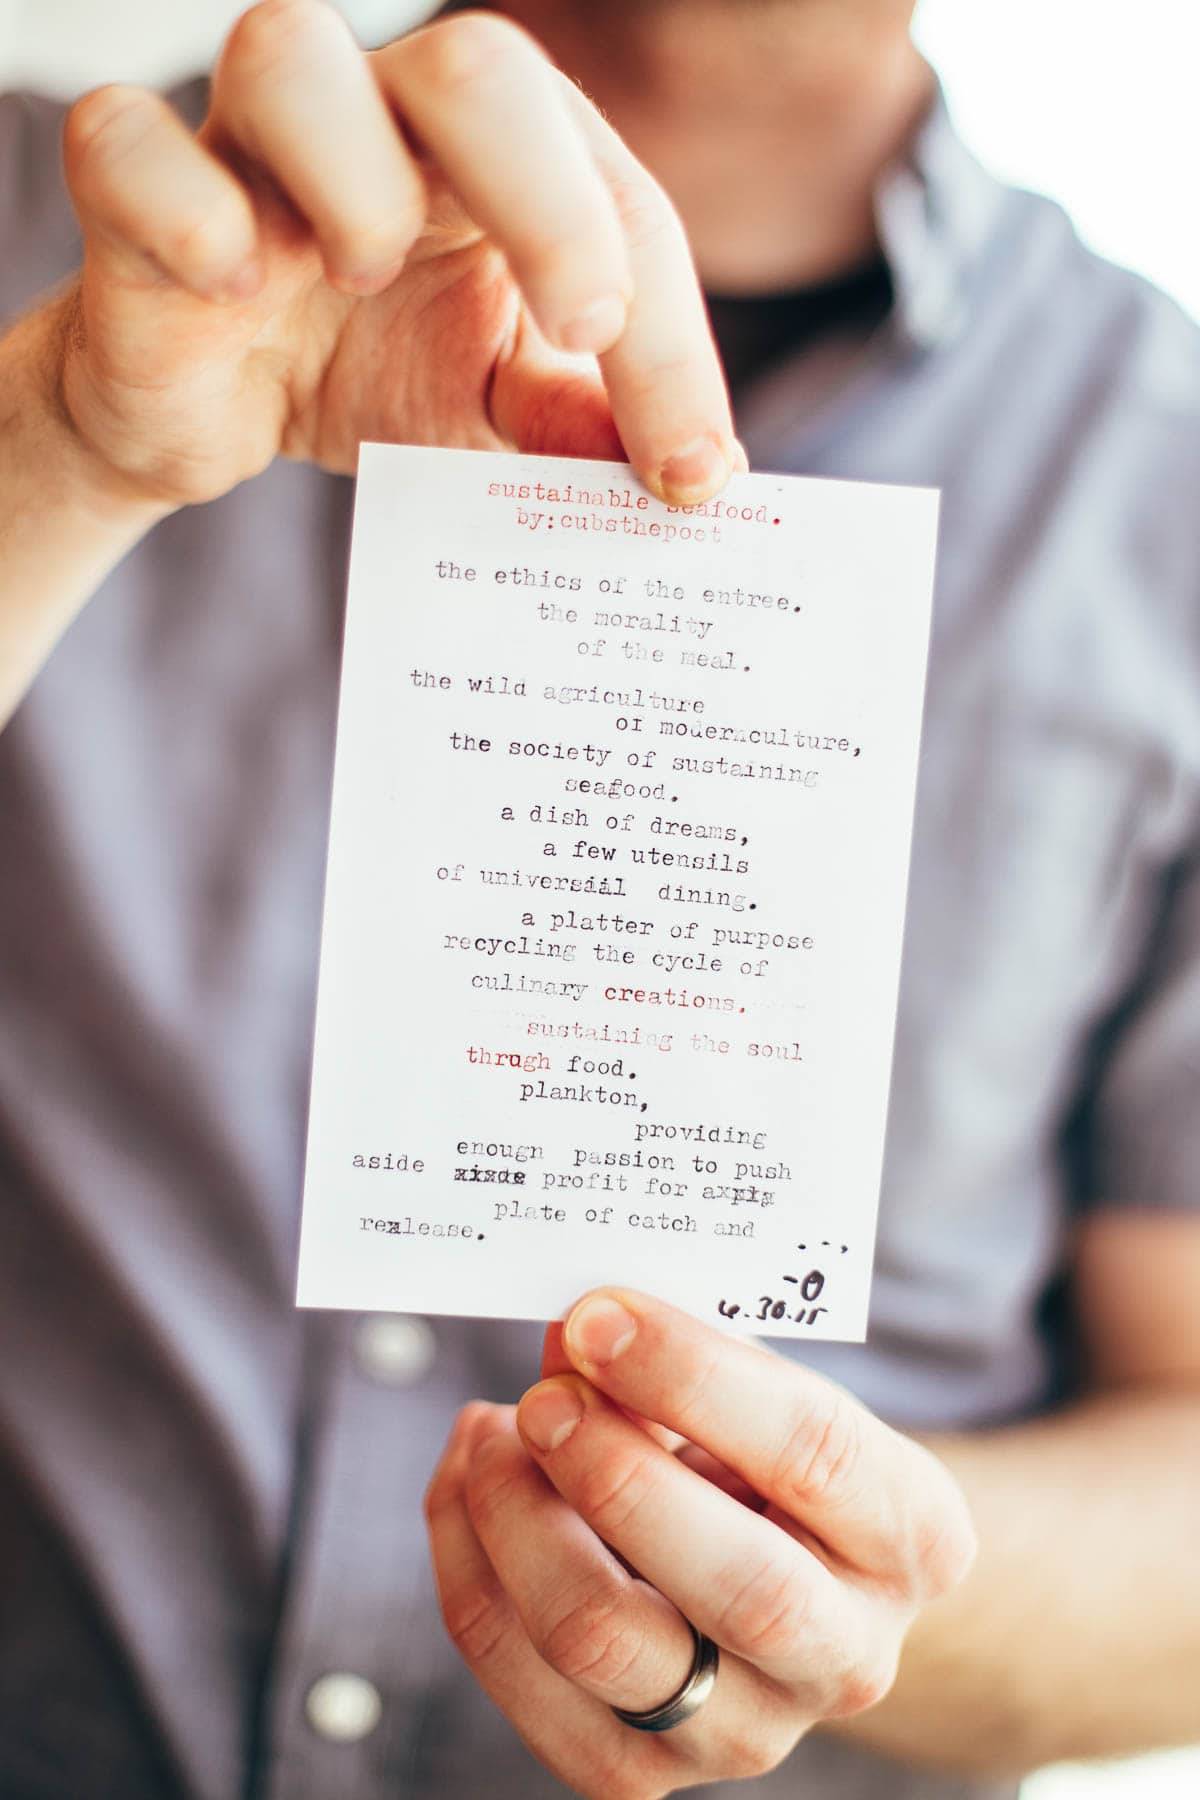 sustainable seafood.
by:cubsthepoet
the ethics of the entree.
the morality
of the meal.
the wild agriculture
of modernculture,
the society of sustaining
seafood.
a dish of dreams,
a few utensils
of universial dining.
a platter of purpose
recycling the cycle of
culinary creations.
sustaining the soul
thrugh food.
plankton,
providing
enough passion to push
aside profit for a
plate of catch and
release.
-0
4.30.15